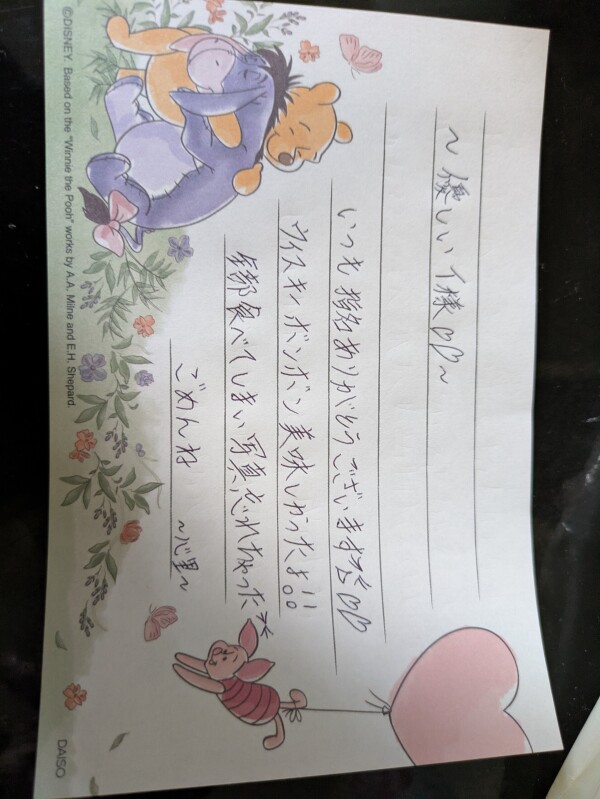 ～優しいT様♡♡～
いつも指名ありがとうございます♡♡
ウィスキーボンボン美味しかったよ!!
全部食べてしまい写真忘れちゃった
ごめんね ～心里～
©DISNEY. Based on the "Winnie the Pooh" works by A.A. Milne and E.H. Shepard.
DAISO